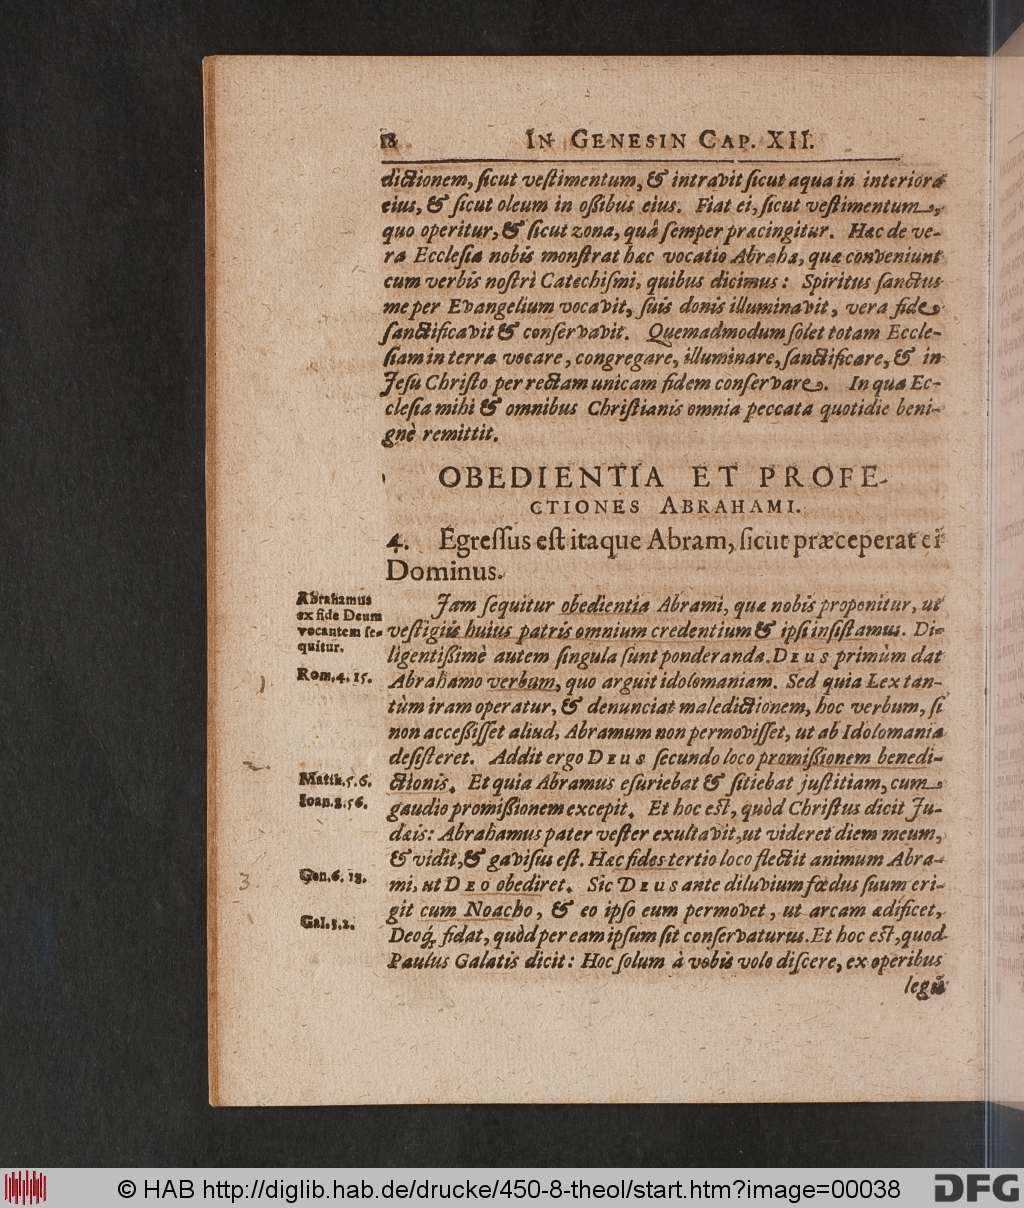 18 IN GENESIN CAP. XII.
dictionem, sicut vestimentum, & intravit sicut aqua in interiora
eius, & sicut oleum in oßibus eius. Fiat ei, sicut vestimentum,
quo operitur, & sicut zona, quâ semper præcingitur. Hæc de ve-
ra Ecclesia nobis monstrat hæc vocatio Abrahæ, quæ conveniunt
cum verbis nostri Catechismi, quibus dicimus: Spiritus sanctus
me per Evangelium vocavit, suis donis illuminavit, vera fide
sanctificavit & conservavit. Quemadmodum solet totam Eccle-
siam in terra vocare, congregare, illuminare, sanctificare, & in
Jesu Christo per rectam unicam fidem conservare. In qua Ec-
clesia mihi & omnibus Christianis omnia peccata quotidie beni-
gnè remittit.
OBEDIENTIA ET PROFE-
CTIONES ABRAHAMI.
4. Egressus est itaque Abram, sicut præceperat ei
Dominus.
Abrahamus
ex fide Deum
vocantem se-
quitur.
Rom. 4. 15.
Jam sequitur obedientia Abrami, quæ nobis proponitur, ut
vestigiis huius patris omnium credentium & ipsi insistamus. Di-
ligentißimè autem singula sunt ponderanda. DEUS primùm dat
Abrahamo verbum, quo arguit idolomaniam. Sed quia Lex tan-
tùm iram operatur, & denunciat maledictionem, hoc verbum, si
non acceßisset aliud, Abramum non permovisset, ut ab Idolomania
desisteret. Addit ergo DEUS secundo loco promißionem benedi-
Matth. 5. 6.
Ioan. 8. 56.
ctionis. Et quia Abramus esuriebat & sitiebat justitiam, cum
gaudio promißionem excepit. Et hoc est, quòd Christus dicit Ju-
dæis: Abrahamus pater vester exultavit, ut videret diem meum,
& vidit, & gavisus est. Hæc fides tertio loco flectit animum Abra-
Gen. 6. 18.
Gal. 3. 2.
mi, ut DEO obediret. Sic DEUS ante diluvium fœdus suum eri-
git cum Noacho, & eo ipso eum permovet, ut arcam ædificet,
Deoq́, fidat, quòd per eam ipsum sit conservaturus. Et hoc est, quod
Paulus Galatis dicit: Hoc solum à vobis volo discere, ex operibus
legis
3
© HAB http://diglib.hab.de/drucke/450-8-theol/start.htm?image=00038
DFG